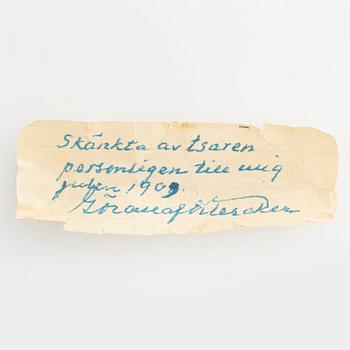 Skänkta av tsaren
personligen till mig
julen 1909.
Göran af Klercker